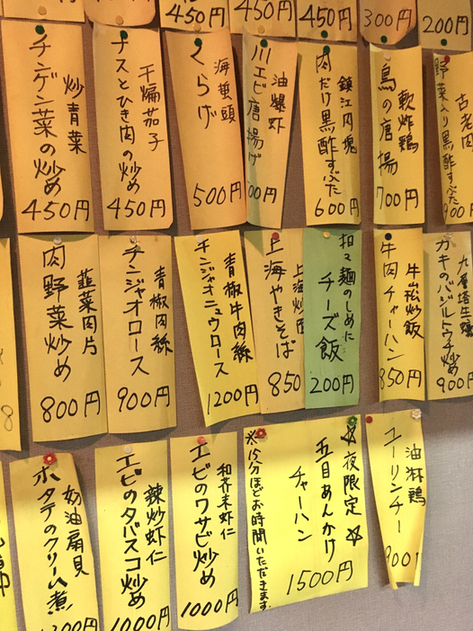 200円
300円
450円
450円
450円
古老肉
野菜入り黒酢すぶた
900
軟炸鶏
鳥の唐揚
700円
鎮江肉塊
肉だけ黒酢すぶた
600円
油爆虾
川エビ唐揚げ
00円
海蜇頭
くらげ
500円
干煸茄子
ナスとひき肉の炒め
450円
炒青菜
チンゲン菜の炒め
450円
カキのバジルトウチ炒め
900円
牛崧炒飯
牛肉チャーハン
850円
担々麺のしめに
チーズ飯
200円
上海炒面
上海やきそば
850
青椒牛肉絲
チンジャオニュウロース
1200円
青椒肉絲
チンジャオロース
900円
韮菜肉片
肉野菜炒め
800円
油淋鶏
ユーリンチー
900
☆夜限定☆
五目あんかけ
チャーハン
1500円
※15分ほどお時間いただきます。
和芥末虾仁
エビのワサビ炒め
1000円
辣炒虾仁
エビのタバスコ炒め
1000円
奶油扇貝
ホタテのクリーム煮
1200円